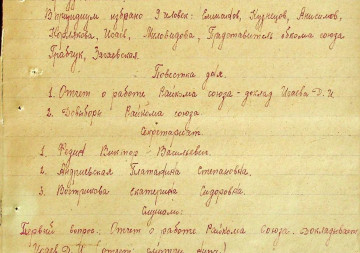 В президиум избрано 9 человек: Епишанов, Кузнецов, Анисимов,
Корлякова, Исаев, Миловидова, Представитель обкома союза
Правчук, Загаевская.
Повестка дня.
1. Отчет о работе Райкома союза - доклад Исаева Д. И
2. Довыборы Райкома союза
Секретариат.
1. Федин Виктор Васильевич.
2. Андриевская Платафина Степановна.
3. Вострикова Екатерина Сидоровна.
Слушали:
Первый вопрос: Отчет о работе Райкома Союза. Докладывает
Исаев Д. И. (отчет: смотри